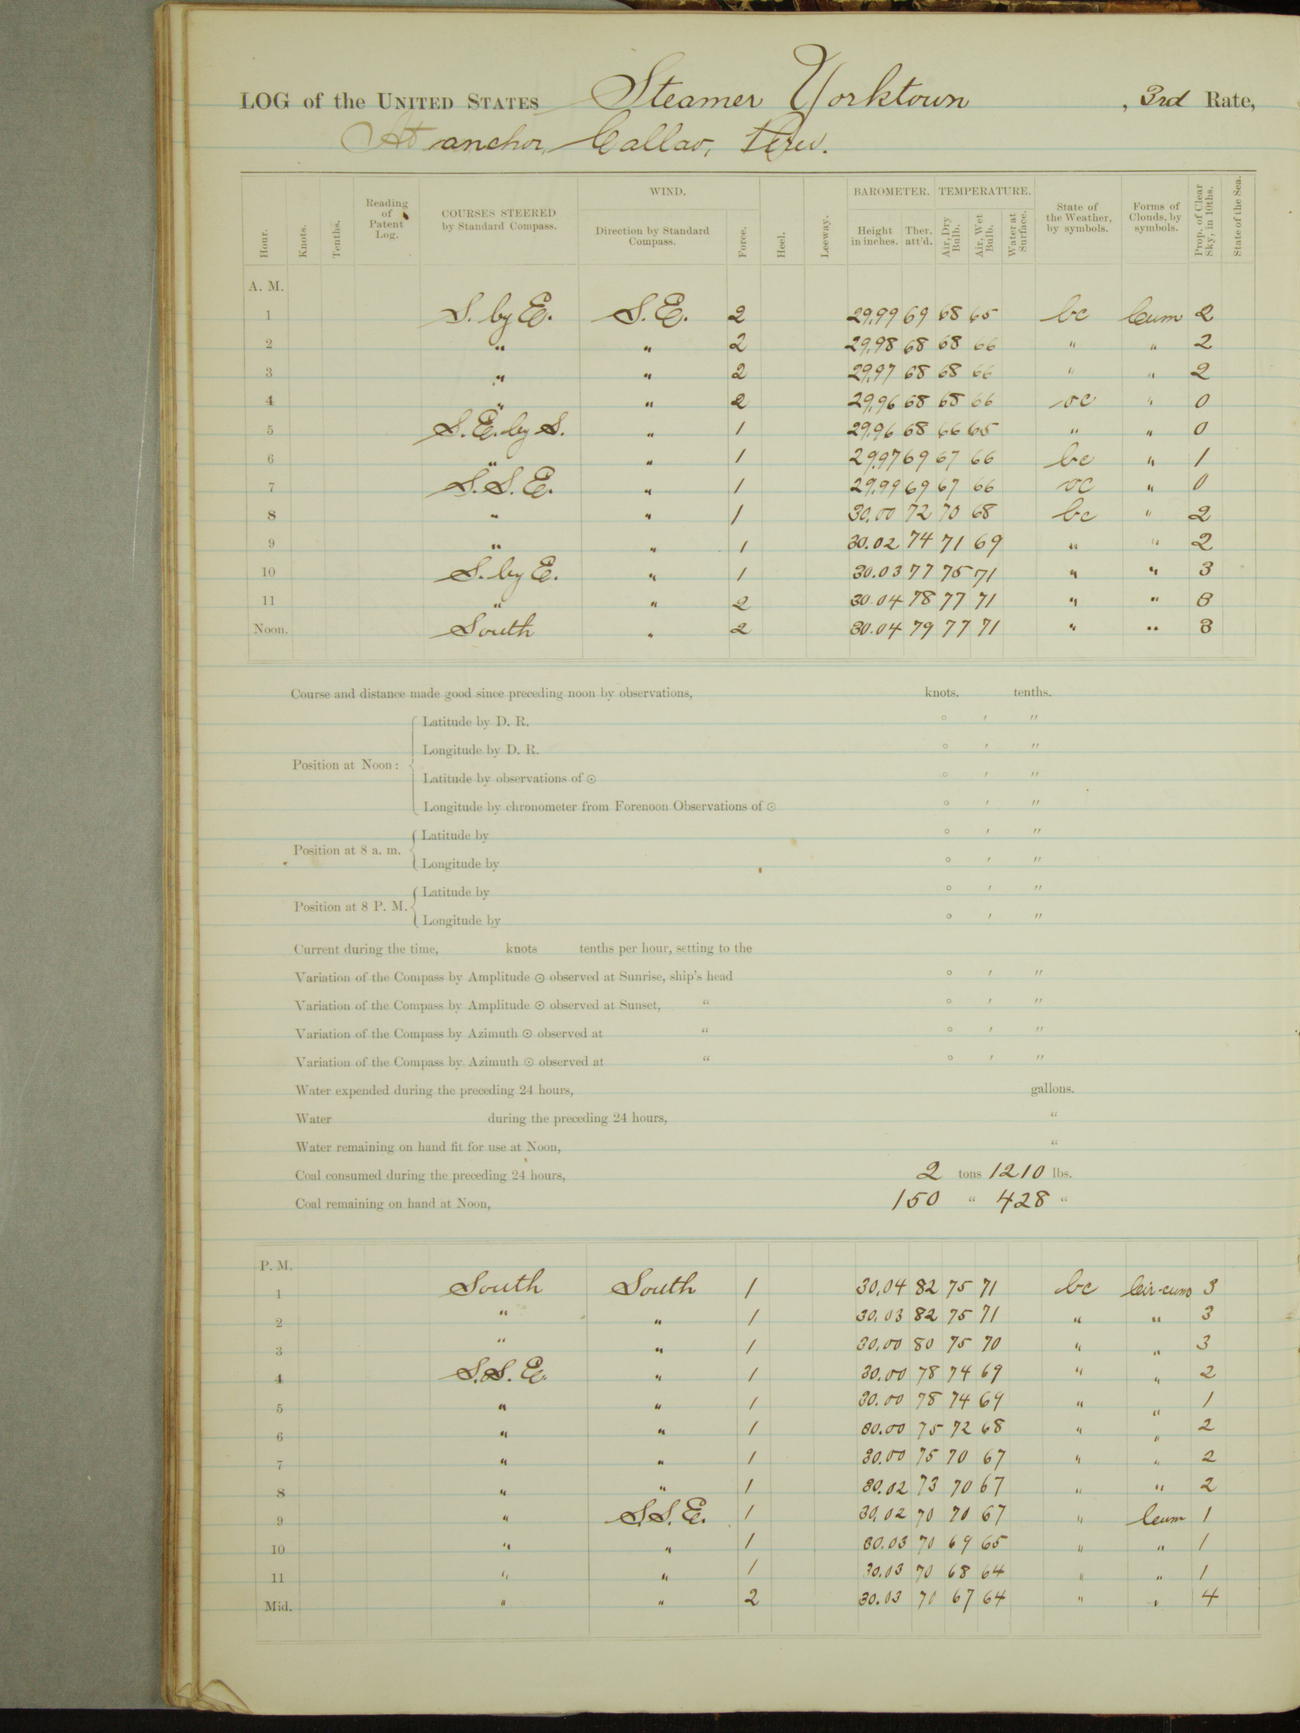 LOG of the UNITED STATES Steamer Yorktown, 3rd Rate,
At anchor, Callao, Peru.
Hour. Knots. Tenths. Reading of Patent Log. COURSES STEERED by Standard Compass. WIND. Direction by Standard Compass. Force. Heel. Leeway. BAROMETER. Height in inches. Ther. att'd. TEMPERATURE. Air, Dry Bulb. Air, Wet Bulb. Water at Surface. State of the Weather, by symbols. Forms of Clouds, by symbols. Prop. of Clear Sky, in 10ths. State of the Sea.
A. M.
1 S. by E. S.E. 2 29.99 69 68 65 bc Cum 2
2 " " 2 29.98 68 68 66 " " 2
3 " " 2 29.97 68 68 66 " " 2
4 " " 2 29.96 68 68 66 oc " 0
5 S.E. by S. " 1 29.96 68 66 65 " " 0
6 " " 1 29.97 69 67 66 bc " 1
7 S.S.E. " 1 29.99 69 67 66 oc " 0
8 " " 1 30.00 72 70 68 bc " 2
9 " " 1 30.02 74 71 69 " " 2
10 S. by E. " 1 30.03 77 75 71 " " 3
11 " " 2 30.04 78 77 71 " " 3
Noon. South " 2 30.04 79 77 71 " " 3
Course and distance made good since preceding noon by observations, knots. tenths.
Latitude by D. R. ° ′ ″
Longitude by D. R. ° ′ ″
Position at Noon:
Latitude by observations of ☉ ° ′ ″
Longitude by chronometer from Forenoon Observations of ☉ ° ′ ″
Latitude by ° ′ ″
Position at 8 a. m.
Longitude by ° ′ ″
Latitude by ° ′ ″
Position at 8 P. M.
Longitude by ° ′ ″
Current during the time, knots tenths per hour, setting to the
Variation of the Compass by Amplitude ☉ observed at Sunrise, ship's head ° ′ ″
Variation of the Compass by Amplitude ☉ observed at Sunset, " ° ′ ″
Variation of the Compass by Azimuth ☉ observed at " ° ′ ″
Variation of the Compass by Azimuth ☉ observed at " ° ′ ″
Water expended during the preceding 24 hours, gallons.
Water during the preceding 24 hours, "
Water remaining on hand fit for use at Noon, "
Coal consumed during the preceding 24 hours, 2 tons 1210 lbs.
Coal remaining on hand at Noon, 150 " 428 "
P. M.
1 South South 1 30.04 82 75 71 bc Cir-cum 3
2 " " 1 30.03 82 75 71 " " 3
3 " " 1 30.00 80 75 70 " " 3
4 S.S.E. " 1 30.00 78 74 69 " " 2
5 " " 1 30.00 78 74 69 " " 1
6 " " 1 30.00 75 72 68 " " 2
7 " " 1 30.00 75 70 67 " " 2
8 " " 1 30.02 73 70 67 " " 2
9 " S.S.E. 1 30.02 70 70 67 " Cum 1
10 " " 1 30.03 70 69 65 " " 1
11 " " 1 30.03 70 68 64 " " 1
Mid. " " 2 30.03 70 67 64 " " 4